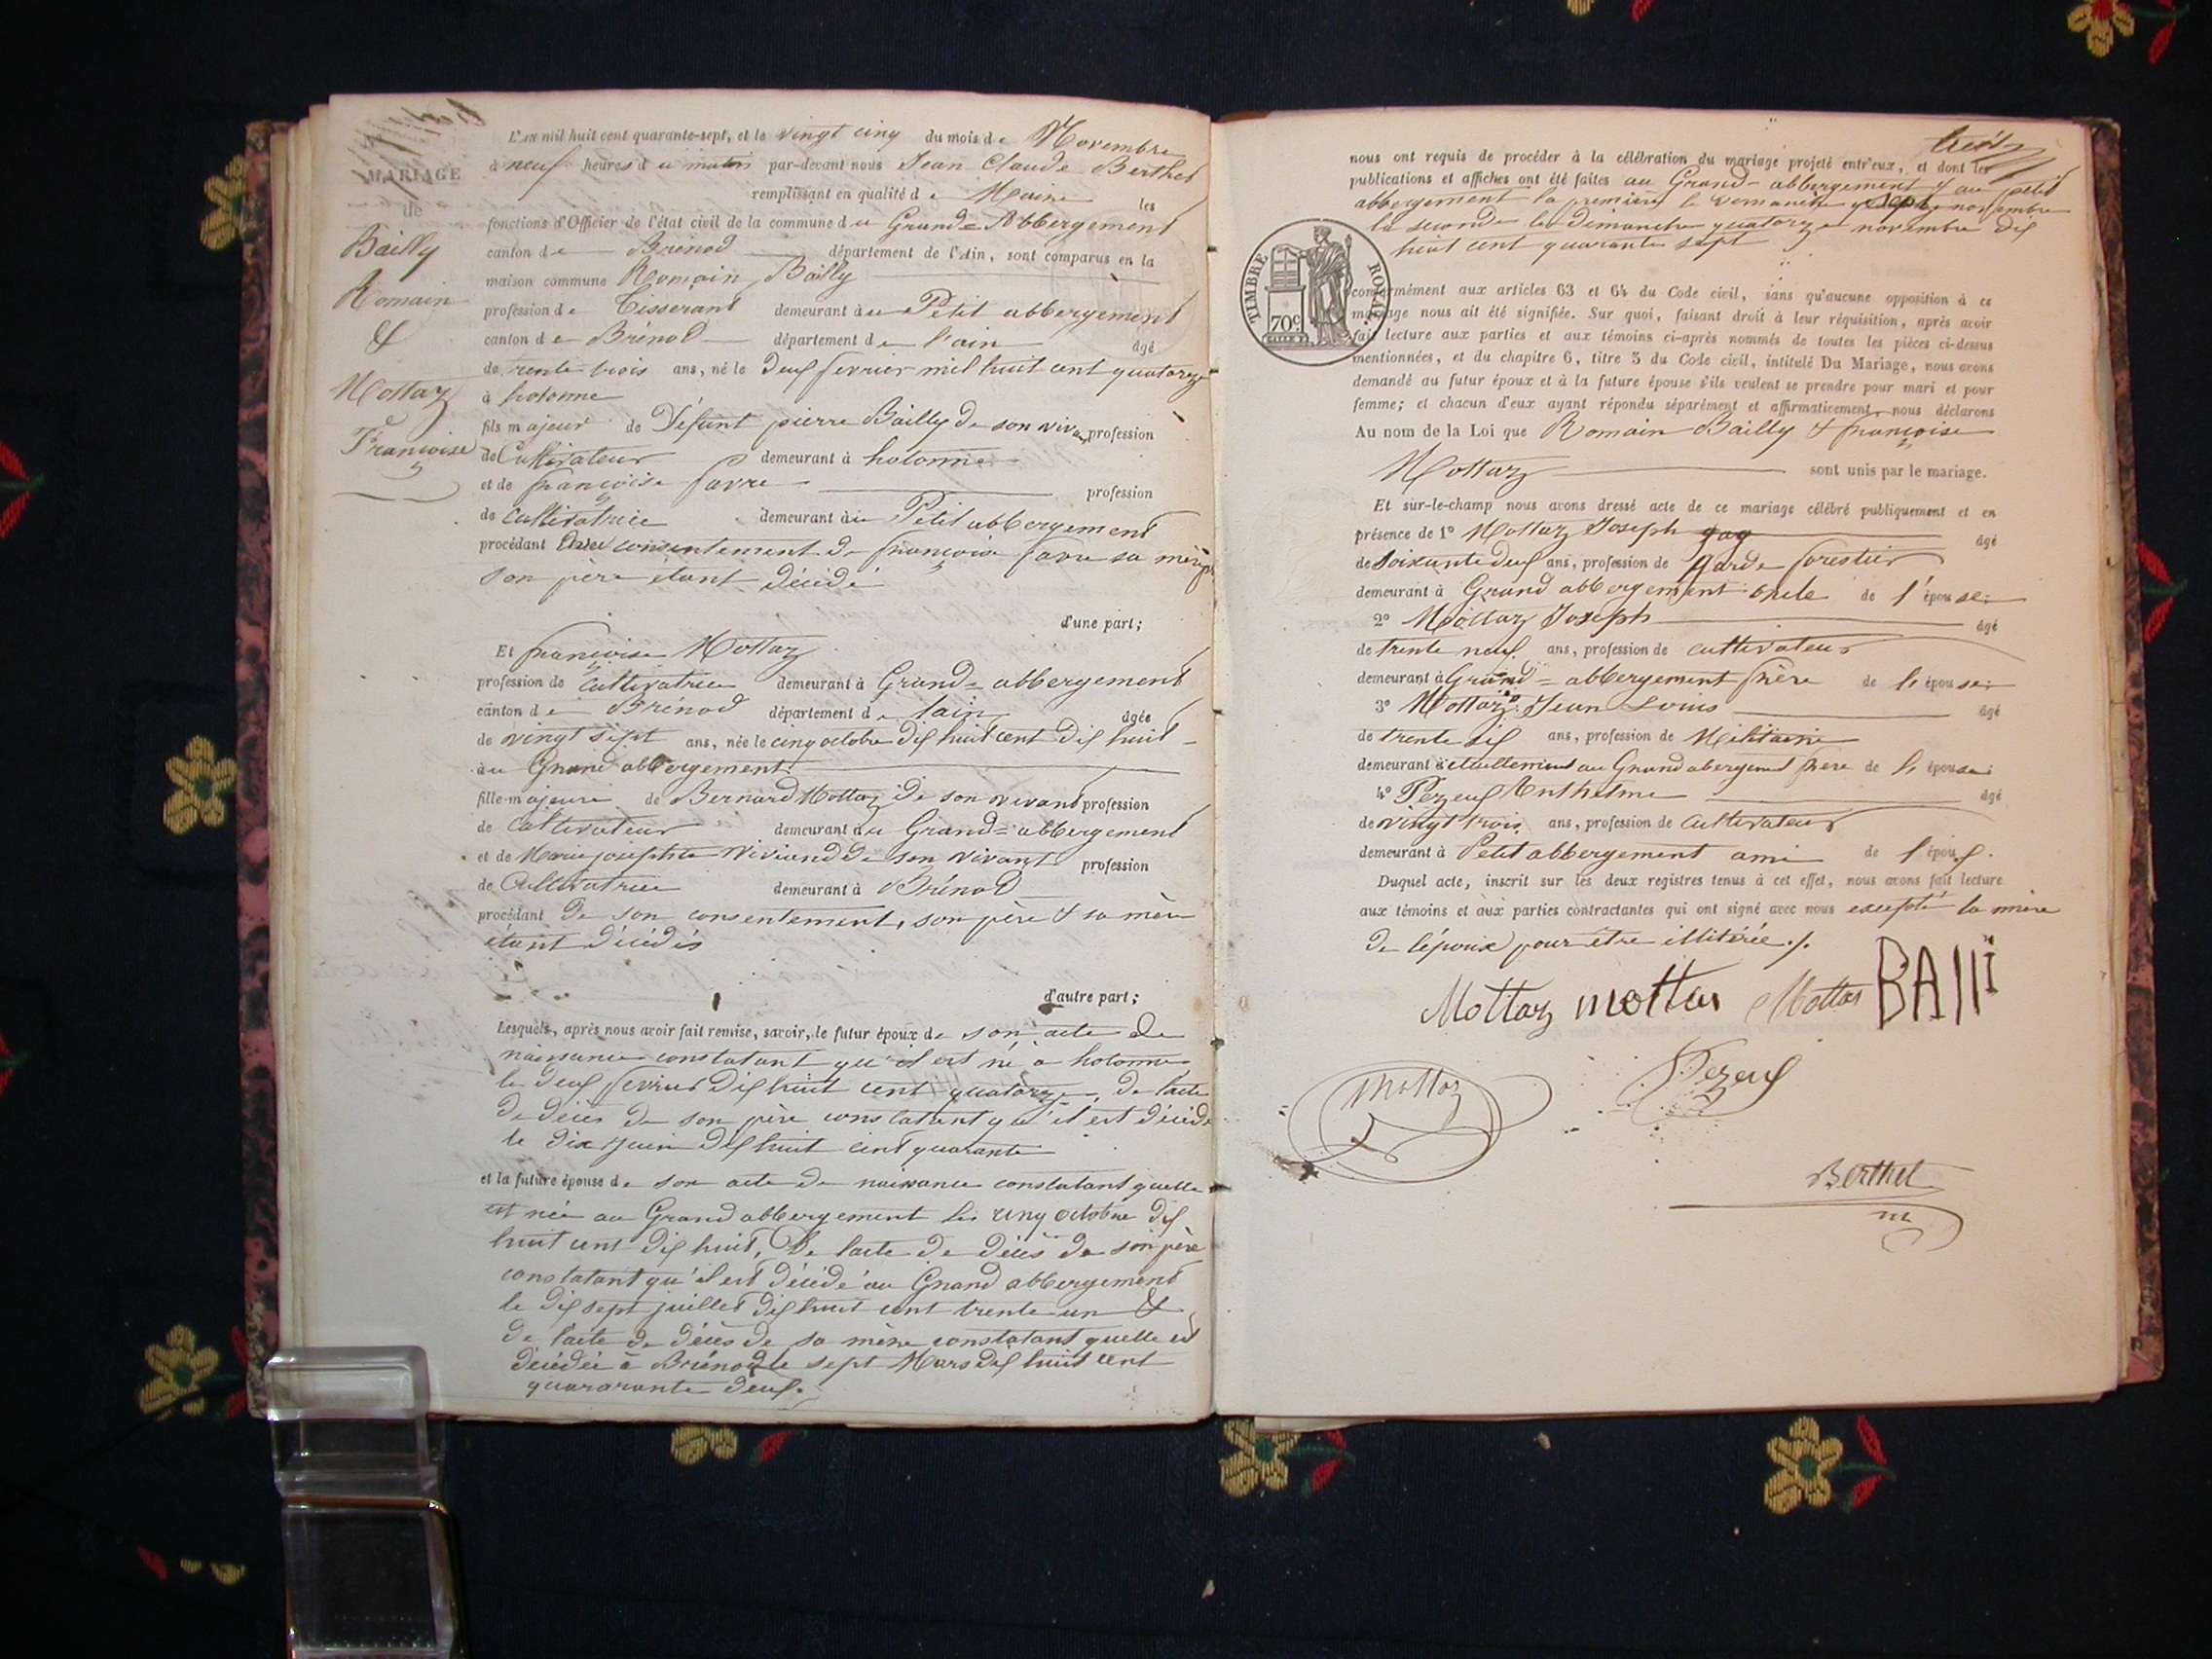 MARIAGE
de
Bailly
Romain
&
Mottaz
Françoise
L'an mil huit cent quarante-sept, et le vingt cinq du mois de Novembre
à neuf heures du matin par-devant nous Jean Claude Berthet
remplissant en qualité de Maire les
fonctions d'Officier de l'état civil de la commune du Grand=Abbergement
canton de Brenod département de l'Ain, sont comparus en la
maison commune Romain Bailly
profession de Tisserant demeurant au Petit abbergement
canton de Brénod département de l'ain âgé
de trente trois ans, né le deux fevrier mil huit cent quatorze
à hotonne
fils majeur de Défunt pierre Bailly de son vivant profession
de Cultivateur demeurant à hotonne
et de françoise favre profession
de Cultivatrice demeurant au Petit abbergement
procédant du consentement de françoise favre sa mère
son père étant décédé
d'une part;
Et françoise Mottaz
profession de cultivatrice demeurant à Grand=abbergement
canton de Brenod département de lain âgée
de vingt sept ans, née le cinq octobre dix huit cent dix huit
au Grand abbergement
fille majeure de Bernard Mottaz de son vivant profession
de cultivateur demeurant au Grand=abbergement
et de Marie josephte Viviand de son vivant profession
de Cultivatrice demeurant à Brénod
procédant de son consentement, son père & sa mère
étant décédés
d'autre part;
Lesquels, après nous avoir fait remise, savoir, le futur époux de son acte de
naissance constatant qu'il est né à hotonne
le deux fevrier dix huit cent quatorze, de l'acte
de décès de son père constatant qu'il est décédé
le dix juin dix huit cent quarante
et la future épouse de son acte de naissance constatant quelle
est née au Grand abbergement les cinq octobre dix
huit cent dix huit, De lacte de décès de son père
constatant qu'il est décédé au Grand abbergement
le dix sept juillet dix huit cent trente un &
de l'acte de décès de sa mère constatant quelle est
décédée à Brénod le sept Mars dix huit cent
quararante deux.
nous ont requis de procéder à la célébration du mariage projeté entr'eux, et dont les
publications et affiches ont été faites au Grand=abbergement & au petit
abbergement la première le Dimanche sept novembre
la seconde le Dimanche quatorze novembre dix
huit cent quarante sept
TIMBRE ROYAL
70c
conformément aux articles 63 et 64 du Code civil, sans qu'aucune opposition à ce
mariage nous ait été signifiée. Sur quoi, faisant droit à leur réquisition, après avoir
fait lecture aux parties et aux témoins ci-après nommés de toutes les pièces ci-dessus
mentionnées, et du chapitre 6, titre 5 du Code civil, intitulé Du Mariage, nous avons
demandé au futur époux et à la future épouse s'ils veulent se prendre pour mari et pour
femme; et chacun d'eux ayant répondu séparément et affirmativement, nous déclarons
Au nom de la Loi que Romain Bailly & françoise
Mottaz sont unis par le mariage.
Et sur-le-champ nous avons dressé acte de ce mariage célébré publiquement et en
présence de 1° Mottaz Joseph âgé
de soixante deux ans, profession de garde forestier
demeurant à Grand abbergement oncle de l'épouse;
2° Mottaz Joseph âgé
de trente neuf ans, profession de cultivateur
demeurant à Grand=abbergement frère de l'épouse;
3° Mottaz Jean Louis âgé
de trente six ans, profession de Militaire
demeurant actuellement au Grand abergement frere de l'épouse;
4° Pezeux Anthelme âgé
de vingt trois ans, profession de Cultivateur
demeurant à Petit abbergement ami de l'époux.
Duquel acte, inscrit sur les deux registres tenus à cet effet, nous avons fait lecture
aux témoins et aux parties contractantes qui ont signé avec nous excepté la mère
de lépoux pour être illitérée ./.
Mottaz mottaz Mottaz BAllï
mottaz Pezeux
Berthet
m